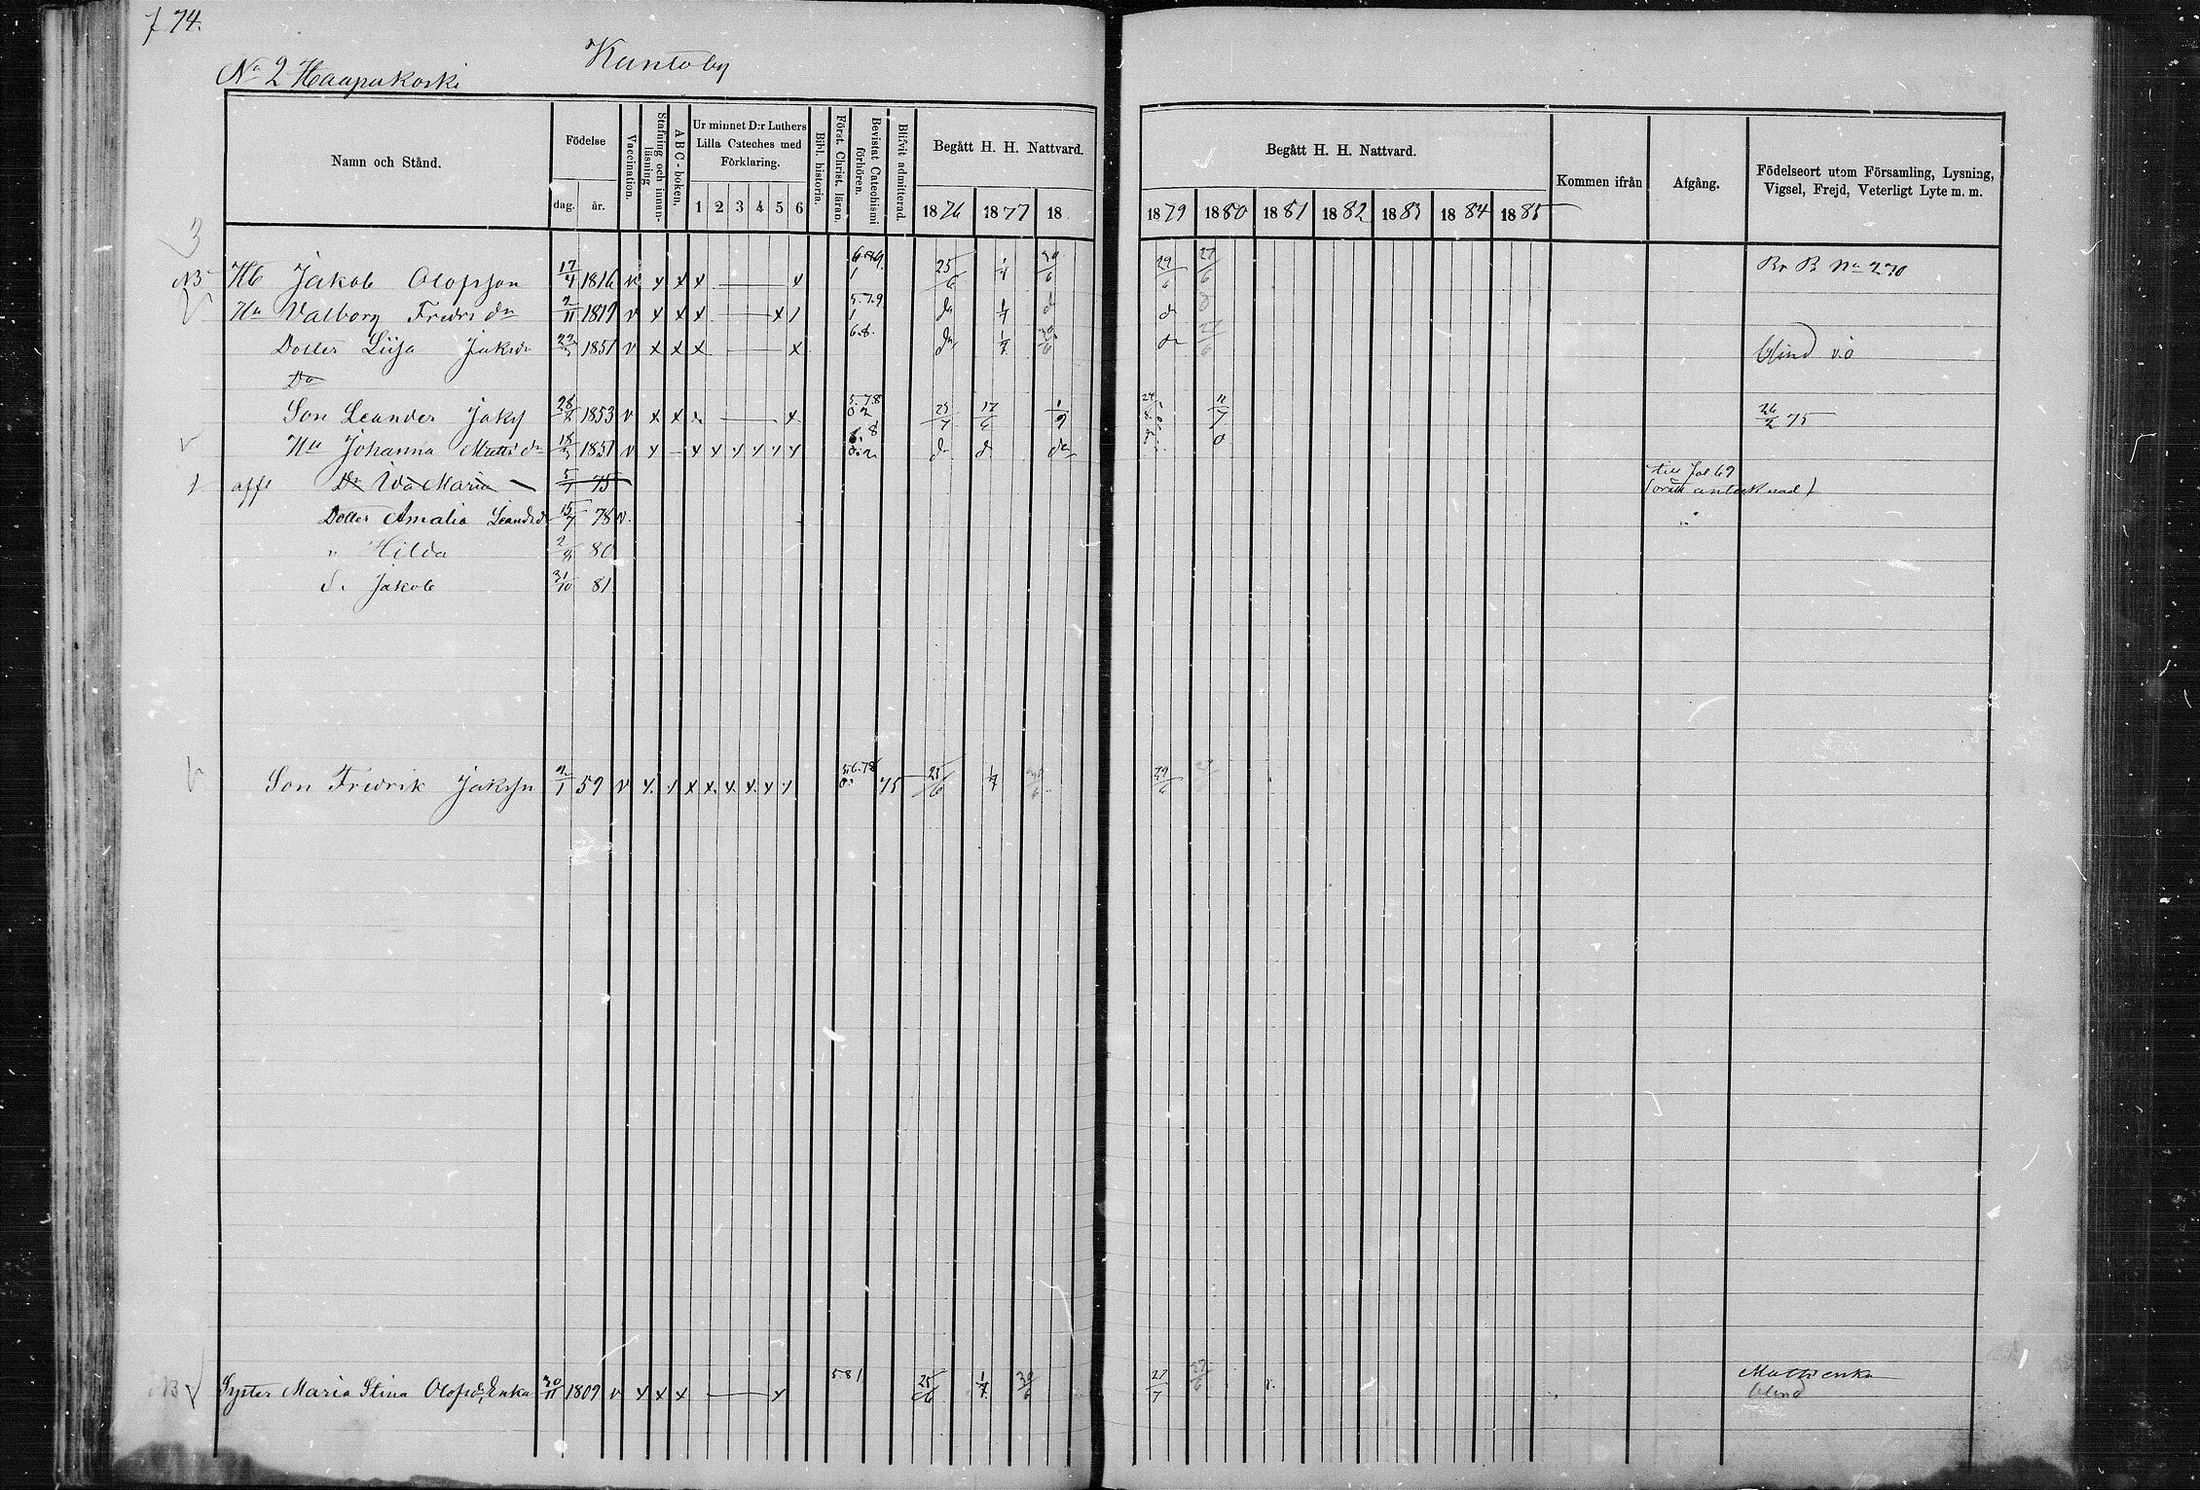 f 74.
Kuntoby
No 2 Haapakoski
Namn och Stånd.
Födelse
dag. år.
Vaccination.
Stafning och innanläsning
A B C-boken.
Ur minnet D:r Luthers Lilla Cateches med Förklaring.
1 2 3 4 5 6
Bibl. historia.
Först. Christ. läran.
Bevistat Catechismi förhören.
Blifvit admitterad.
Begått H. H. Nattvard.
1876 1877 18
Begått H. H. Nattvard.
1879 1880 1881 1882 1883 1884 1885
Kommen ifrån
Afgång.
Födelseort utom Församling, Lysning, Vigsel, Frejd, Veterligt Lyte m. m.
3
NB Hb Jakob Olofsson 17/4 1816 v x x x — x 1 25/6 1/7 30/6 29/6 27/6 No 270
Hu Valborg Fredrsdn 2/11 1819 v x x x — x 1 5.7.9 1 do 1/7 d
Dotter Lüsa Jaksdn 1851 v x x x — x 6.8. do 1/7 30/6 blind
Do
Son Leander Jaks 28/2 1853 v x x x — x 5.7.8 25/7 17/6 1/9 11/7 26/2 75
Hu Johanna Mattsdn 1851 v x — x x x x x x 6.8 do d do
1 affl Dr Ida Maria — 5/7 75 till fol 69
antecknad)
Dotter Amalia Leandsd 15/7 78 v.
" Hilda 2/8 80
S. Jakob 31/10 81
Son Fredrik Jakssn 2/1 59 v x x x x x x x x 75 25/6 1/7 29/6
NB Syster Maria Stina Olofsd, Enka 30/11 1809 v x x x — x 581 25/6 1/7 30/6 27/7 27/6 Matts enka
blind